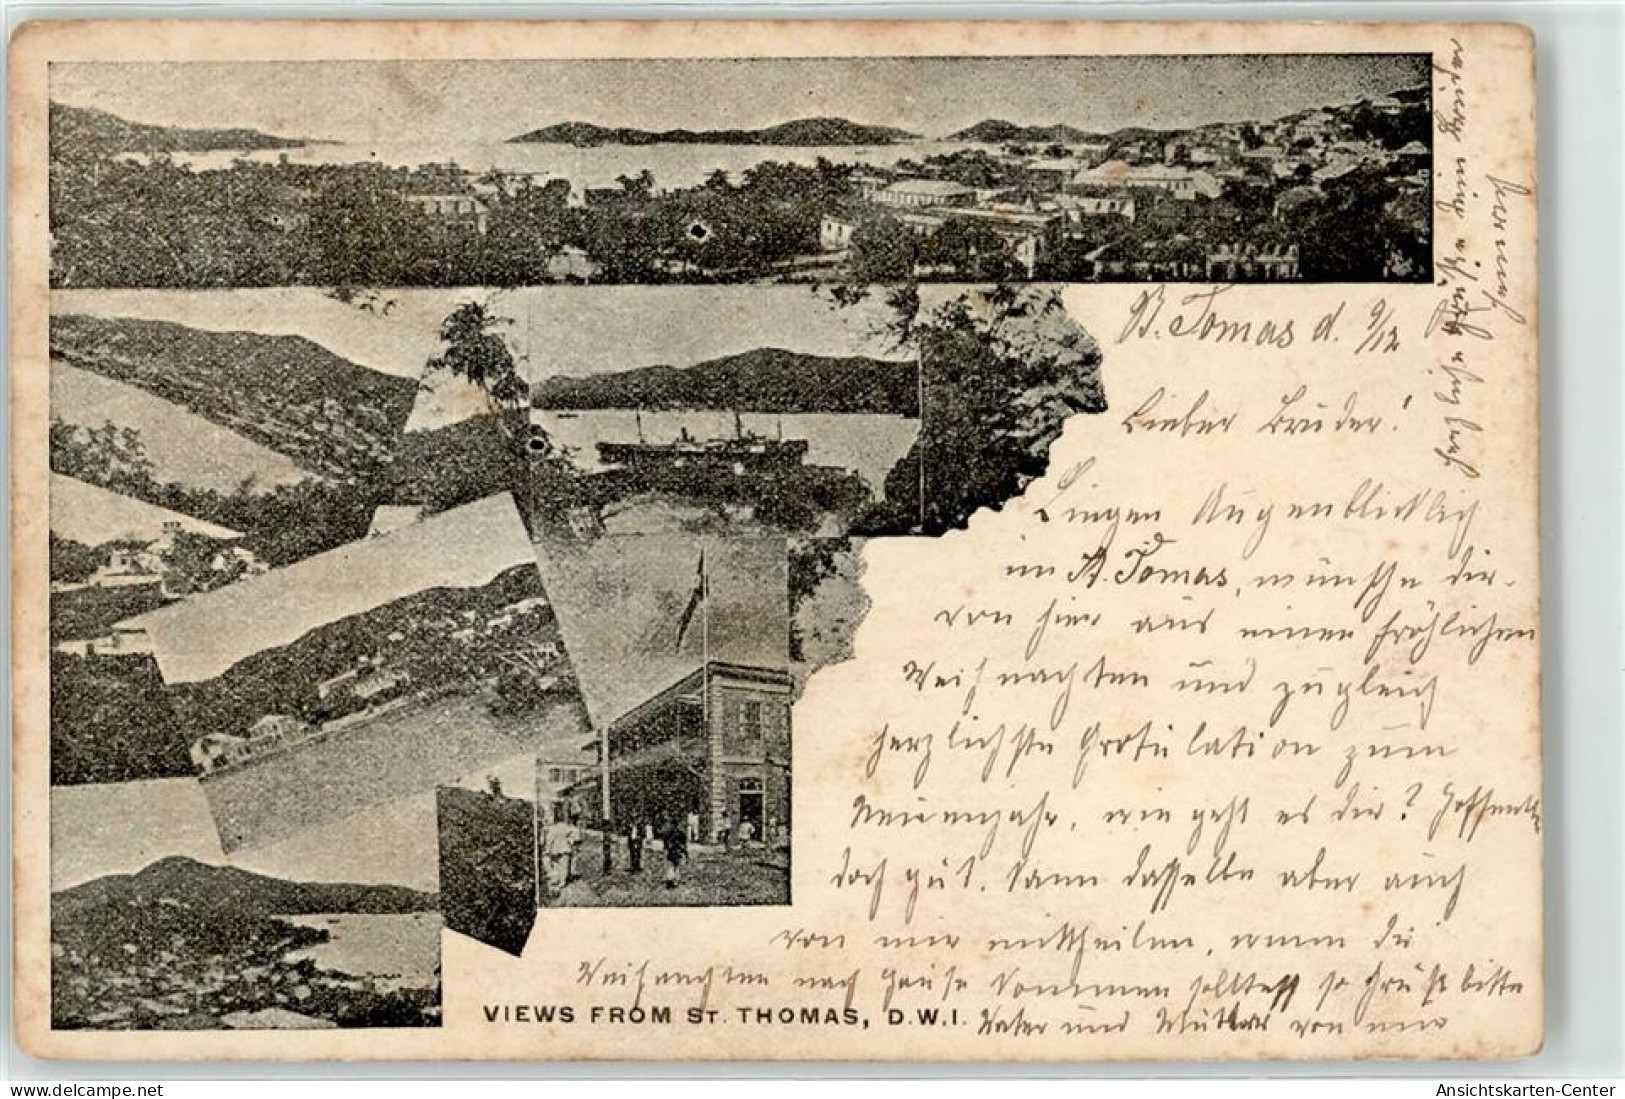 B. Tomas d. 9/12
Lieber Bruder!
Liegen Augenblicklich
in St. Tomas, wünsche dir
von hier aus einen fröhlichen
Weihnachten und zugleich
herzlichste Gratulation zum
Neuenjahr, wie geht es dir? Hoffentl
doch gut. Kann dasselbe aber auch
von mir mittheilen, wenn du
Weihnachten nach Hause kommen solltest so Grüße bitte
Vater und Mutter von mir
VIEWS FROM ST. THOMAS, D.W.I.
Ansichtskarten-Center
https://www.delcampe.net/en_US/collectibles